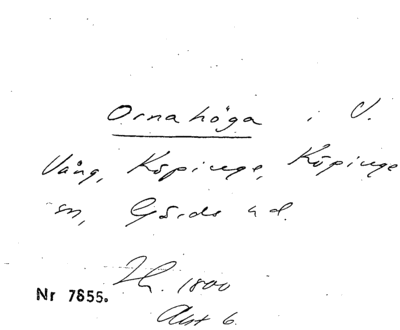 Ornahöga i V.
Vång, Köpinge, Köpinge
sn, Gärds hd.
Nr 7855.
1800
Akt 6.